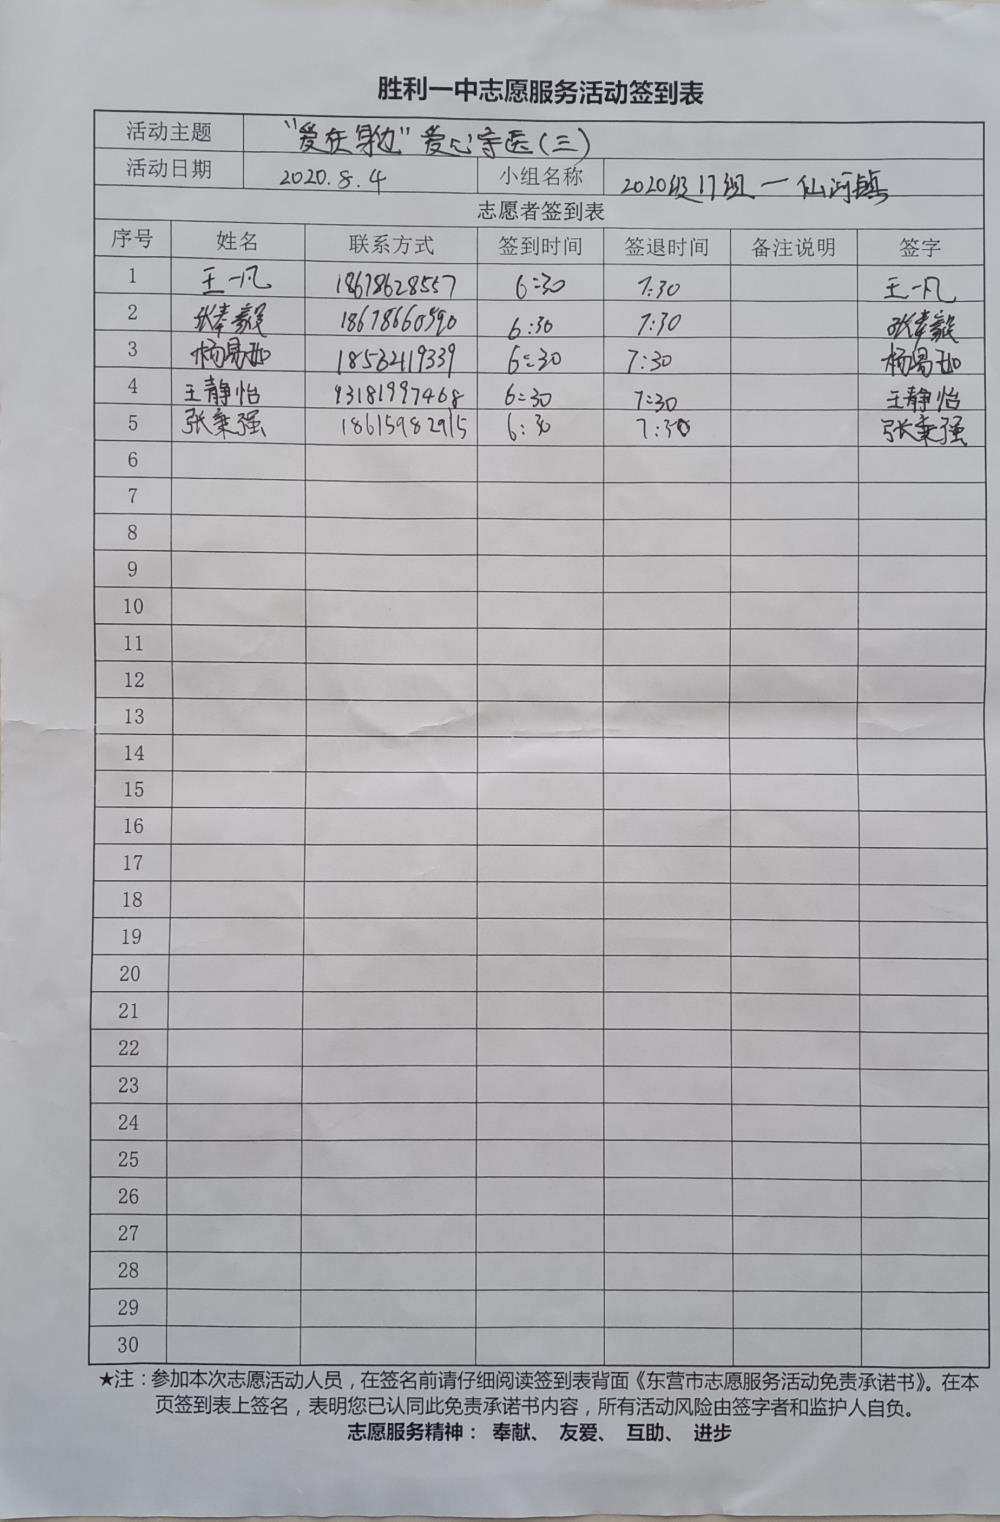 胜利一中志愿服务活动签到表
活动主题 “爱在身边”爱心导医(三)
活动日期 2020.8.4 小组名称 2020级17组一仙河镇
志愿者签到表
序号 姓名 联系方式 签到时间 签退时间 备注说明 签字
1 王一凡 18678628557 6:30 7:30 王一凡
2 张奉毅 18678660590 6:30 7:30 张奉毅
3 杨易如 18562419339 6:30 7:30 杨易如
4 王静怡 93181997468 6:30 7:30 王静怡
5 张秉强 18615982915 6:30 7:30 张秉强
6
7
8
9
10
11
12
13
14
15
16
17
18
19
20
21
22
23
24
25
26
27
28
29
30
★注：参加本次志愿活动人员，在签名前请仔细阅读签到表背面《东营市志愿服务活动免责承诺书》。在本
页签到表上签名，表明您已认同此免责承诺书内容，所有活动风险由签字者和监护人自负。
志愿服务精神： 奉献、 友爱、 互助、 进步